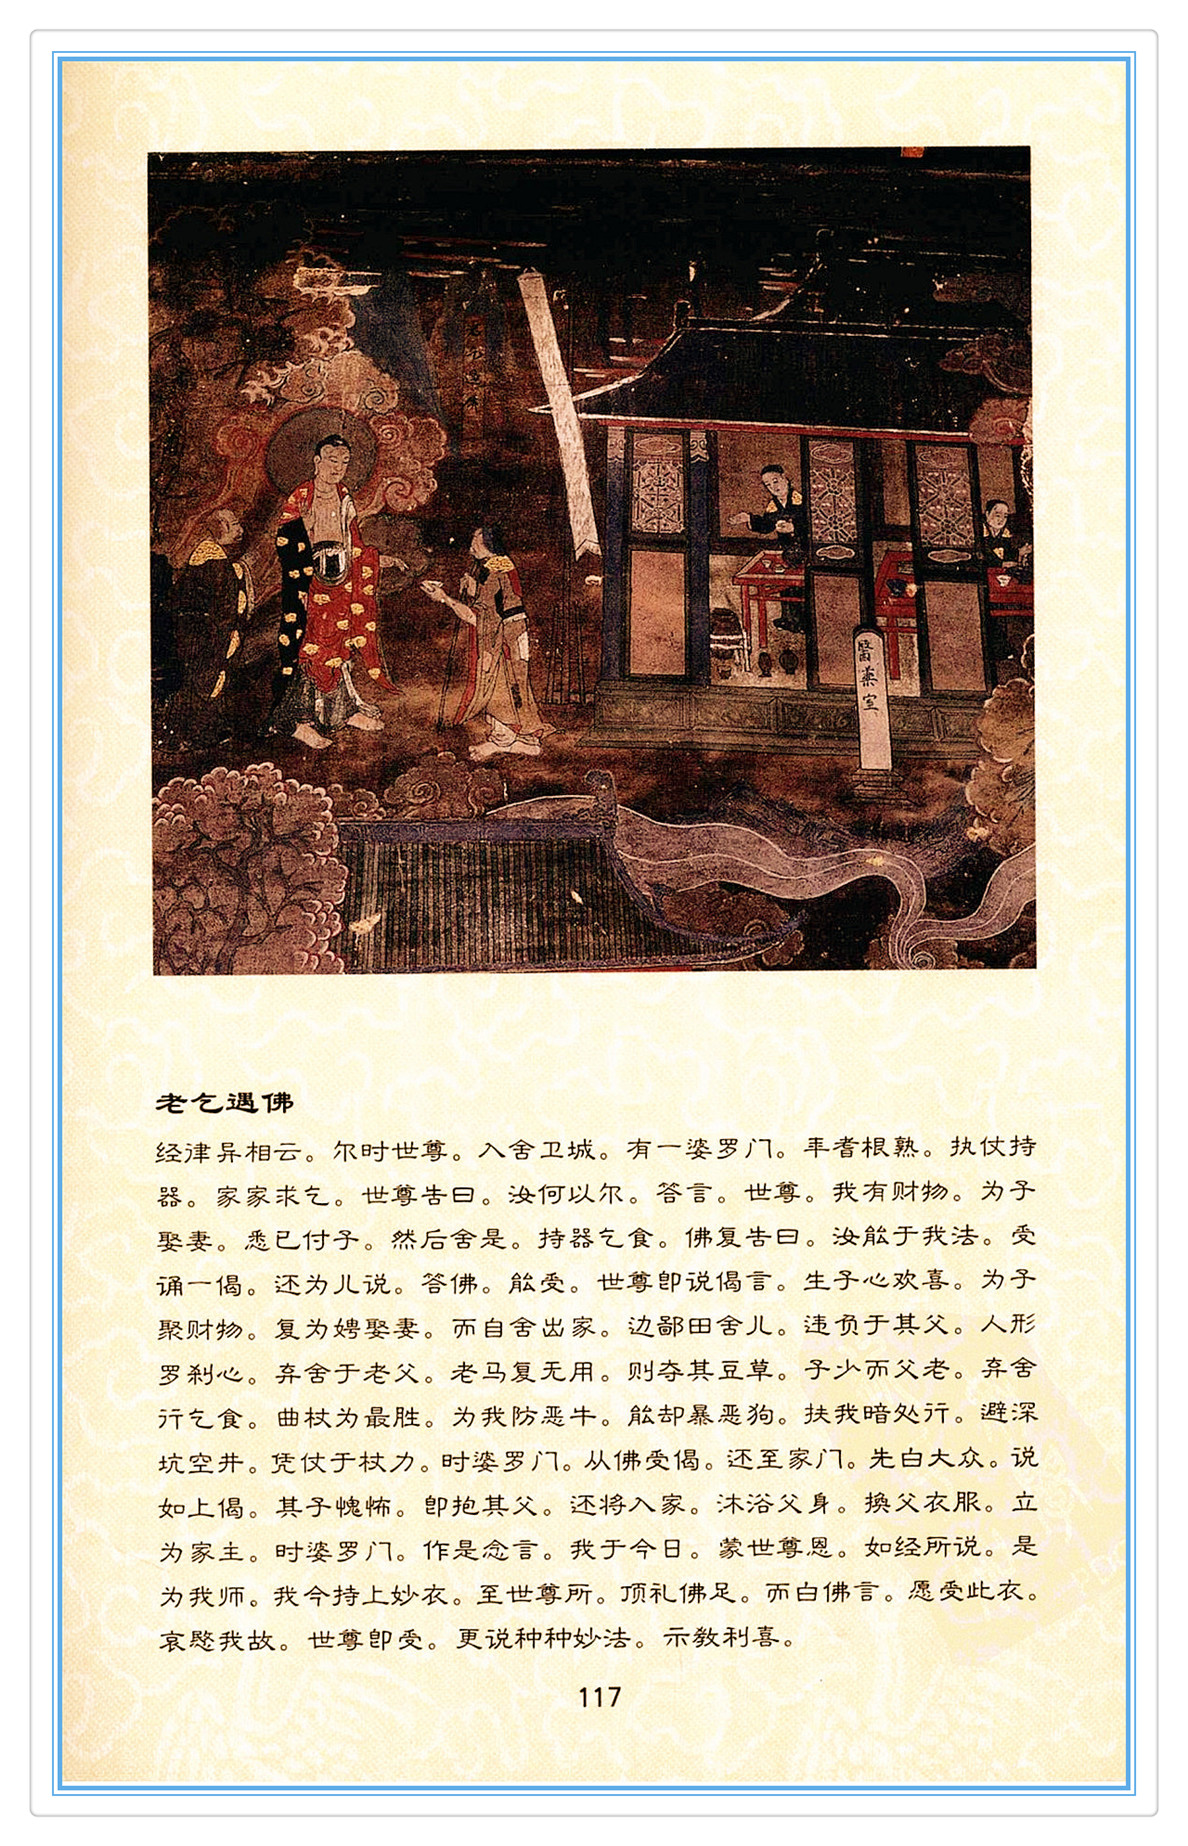 醫藥室
老乞遇佛
经律异相云。尔时世尊。入舍卫城。有一婆罗门。年耆根熟。执仗持
器。家家求乞。世尊告曰。汝何以尔。答言。世尊。我有财物。为子
娶妻。悉已付子。然后舍是。持器乞食。佛复告曰。汝能于我法。受
诵一偈。还为儿说。答佛。能受。世尊即说偈言。生子心欢喜。为子
聚财物。复为娉娶妻。而自舍出家。边鄙田舍儿。违负于其父。人形
罗刹心。弃舍于老父。老马复无用。则夺其豆草。子少而父老。弃舍
行乞食。曲杖为最胜。为我防恶牛。能却暴恶狗。扶我暗处行。避深
坑空井。凭仗于杖力。时婆罗门。从佛受偈。还至家门。先白大众。说
如上偈。其子愧怖。即抱其父。还将入家。沐浴父身。换父衣服。立
为家主。时婆罗门。作是念言。我于今日。蒙世尊恩。如经所说。是
为我师。我今持上妙衣。至世尊所。顶礼佛足。而白佛言。愿受此衣。
哀愍我故。世尊即受。更说种种妙法。示教利喜。
117